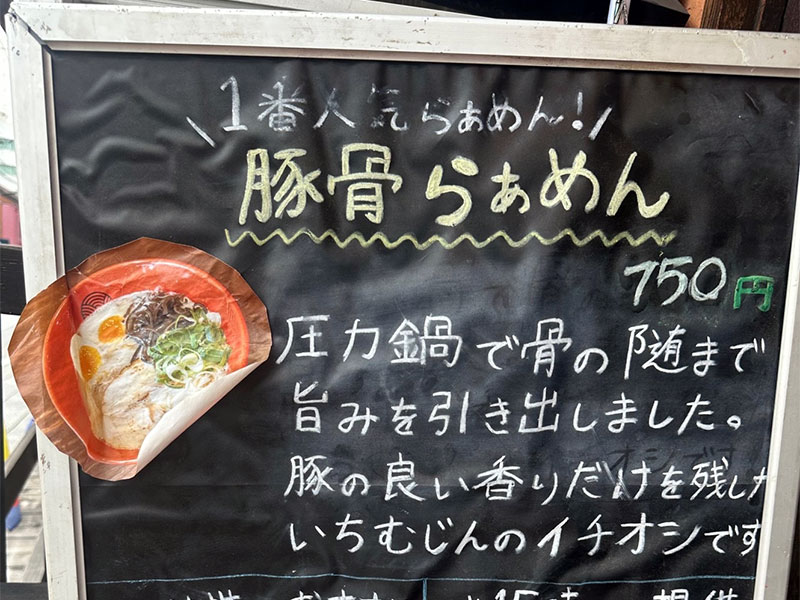 \1番人気らぁめん!/
豚骨らぁめん
750円
圧力鍋で骨の随まで
旨みを引き出しました。
豚の良い香りだけを残した
いちむじんのイチオシです